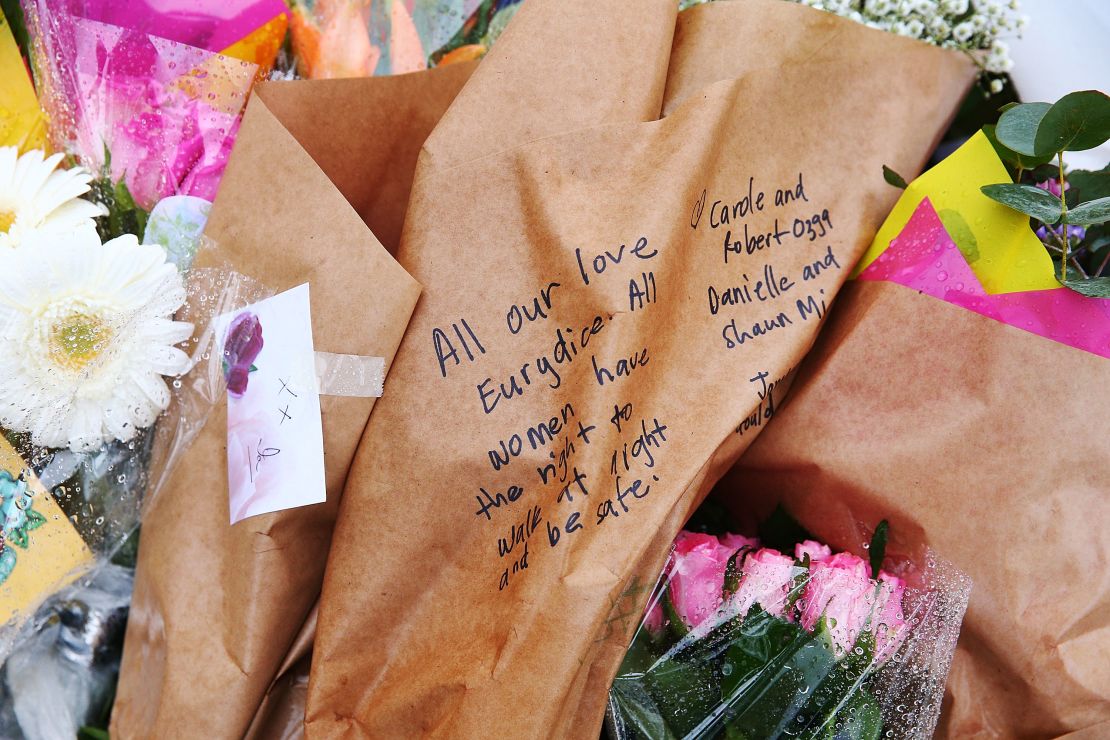 All our love
Eurydice. All
women have
the right to
walk at night
and be safe.
♡ Carole and
Robert Ozga
Danielle and
Shaun Mi
x
x